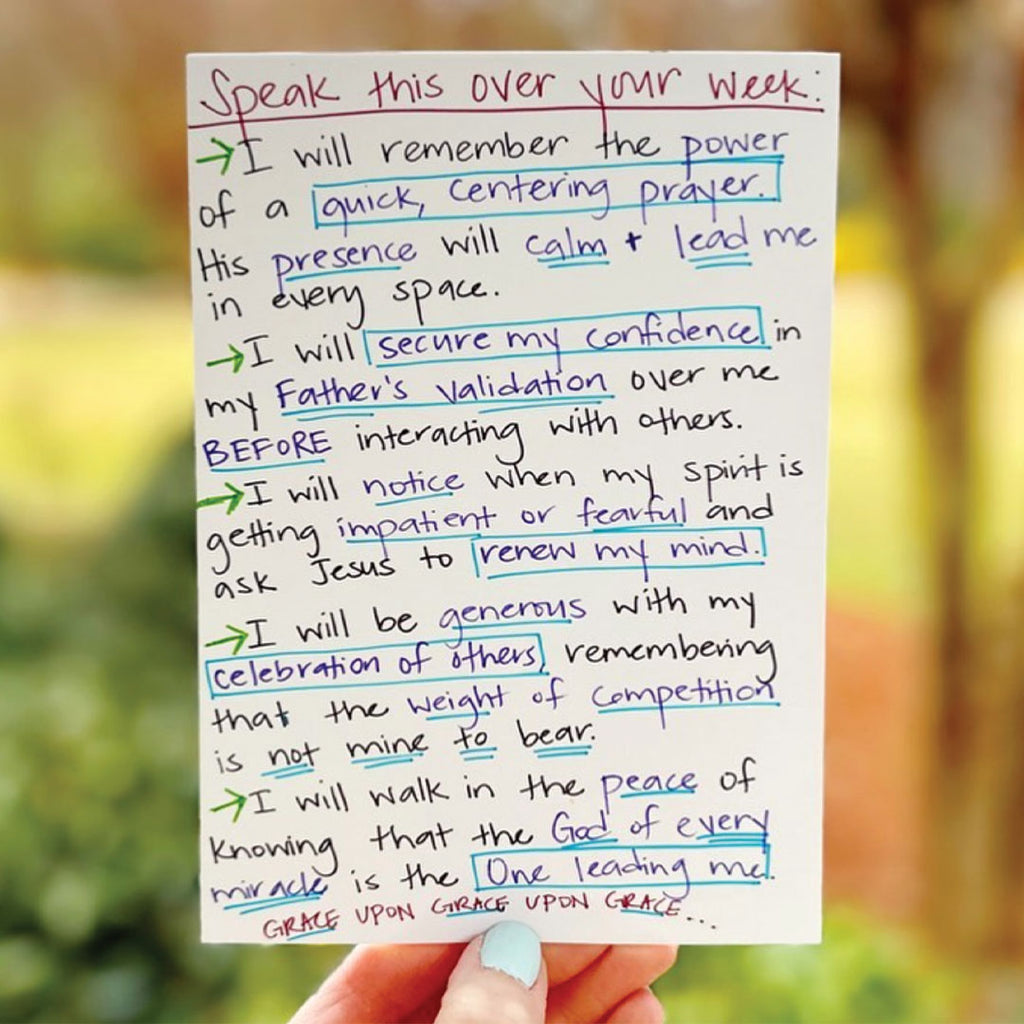 Speak this over your week:
→I will remember the power
of a quick, centering prayer.
His presence will calm + lead me
in every space.
→I will secure my confidence in
my Father's validation over me
BEFORE interacting with others.
→I will notice when my spirit is
getting impatient or fearful and
ask Jesus to renew my mind.
→I will be generous with my
celebration of others, remembering
that the weight of competition
is not mine to bear.
→I will walk in the peace of
knowing that the God of every
miracle is the One leading me.
GRACE UPON GRACE UPON GRACE...